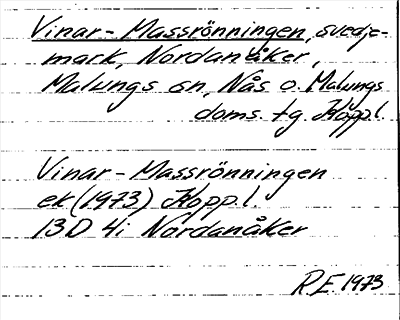 Vinar-Massrönningen, svedje-
mark, Nordanåker,
Malungs sn, Nås o. Malungs
doms. tg. Kopp.l.
Vinar-Massrönningen
ek (1973) Kopp.l.
13D 4i Nordanåker
R.E. 1973